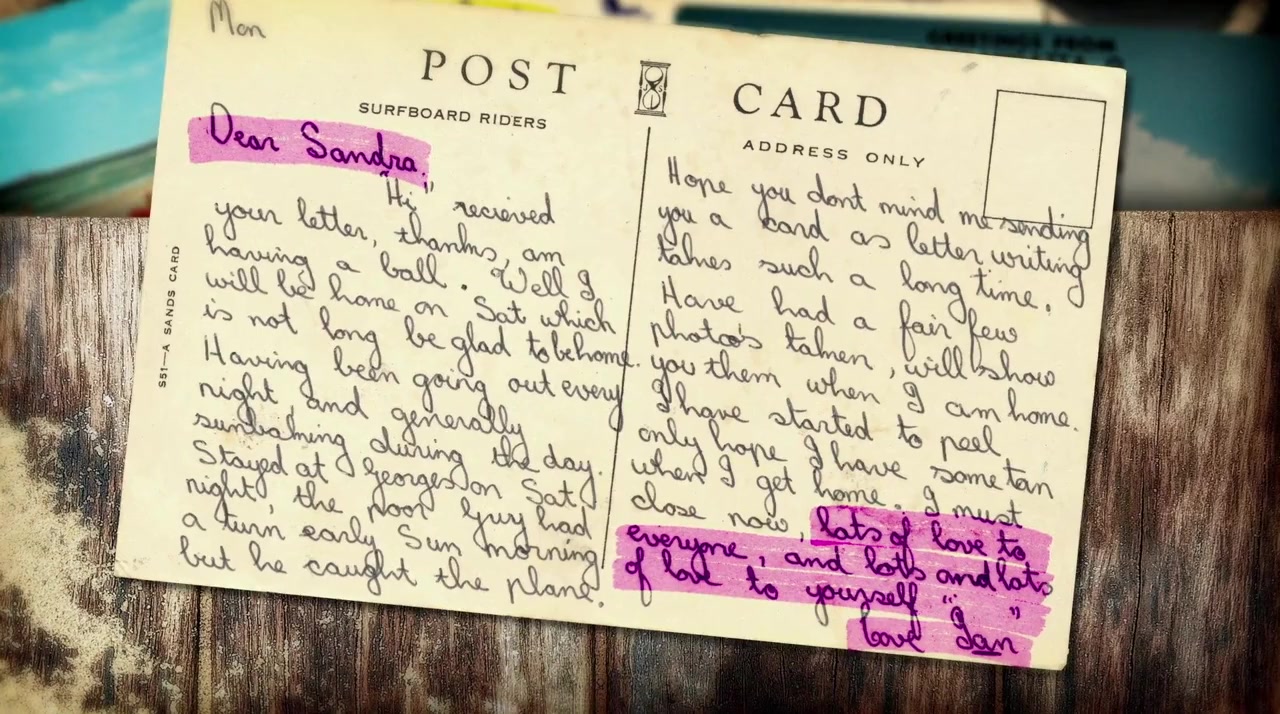 Mon
POST CARD
SURFBOARD RIDERS
ADDRESS ONLY
S51—A SANDS CARD
Dear Sandra,
"Hi" recieved
your letter, thanks, am
having a ball. Well I
will be home on Sat which
is not long be glad to be home.
Having been going out every
night and generally
sunbaking during the day.
Stayed at Georges on Sat
night, the poor Guy had
a turn early Sun morning
but he caught the plane.
Hope you dont mind me sending
you a card as letter writing
takes such a long time.
Have had a fair few
photo's taken, will show
you them when I am home.
I have started to peel
only hope I have some tan
when I get home. I must
close now, lots of love to
everyone, and lots and lots
of love to yourself
love "Ian"
GREETINGS FROM